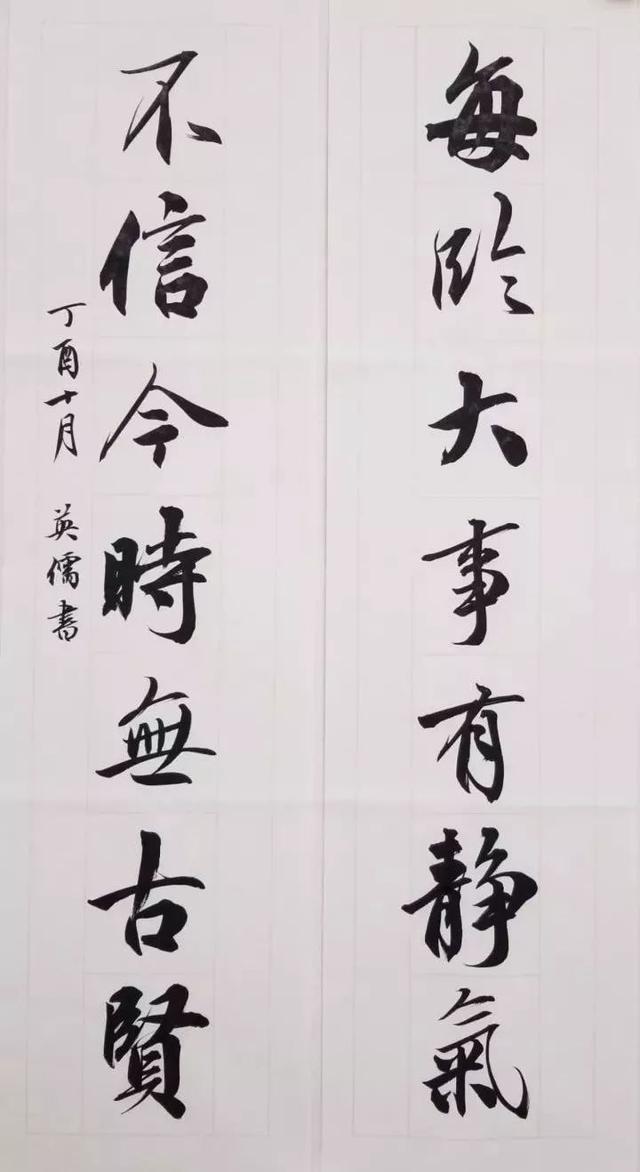 每臨大事有静氣
不信今時無古賢
丁酉十月 英儒書